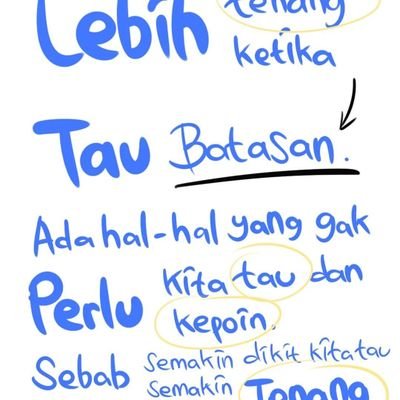 Lebih tenang
ketika
Tau Batasan.
Ada hal-hal yang gak
Perlu kita tau dan
kepoin.
Sebab Semakin dikit kita tau
Semakin Tenang